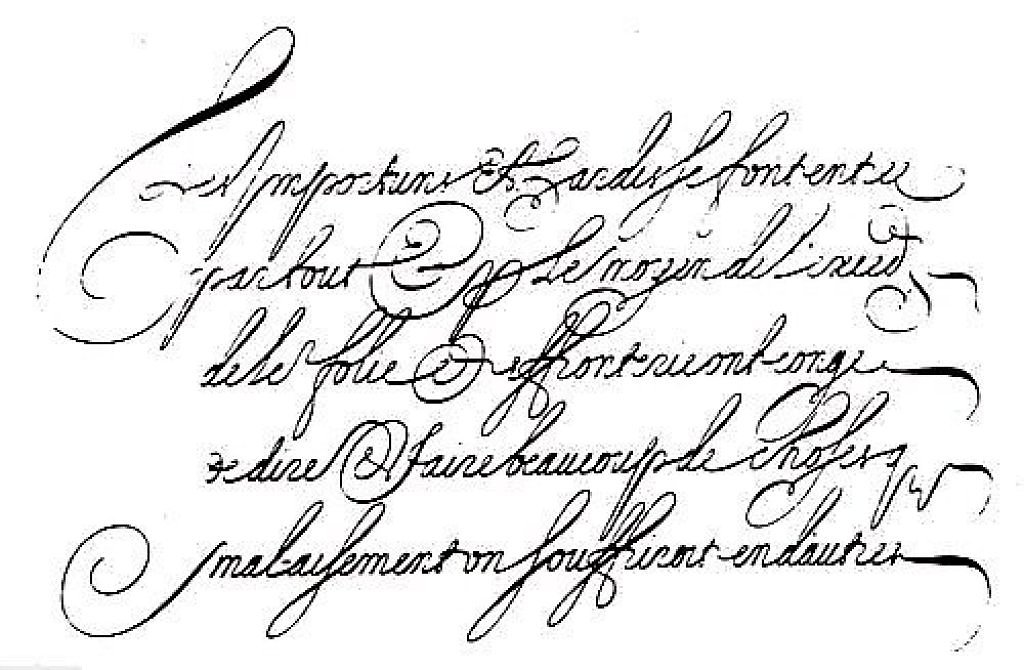 Les Importuns Et Hardis se font entree
par tout Et Le moyen de l'exced
de la folie Et effronterie ont conge
de dire Et faire beaucoup de choses q
malaisement on souffriroit en dautres